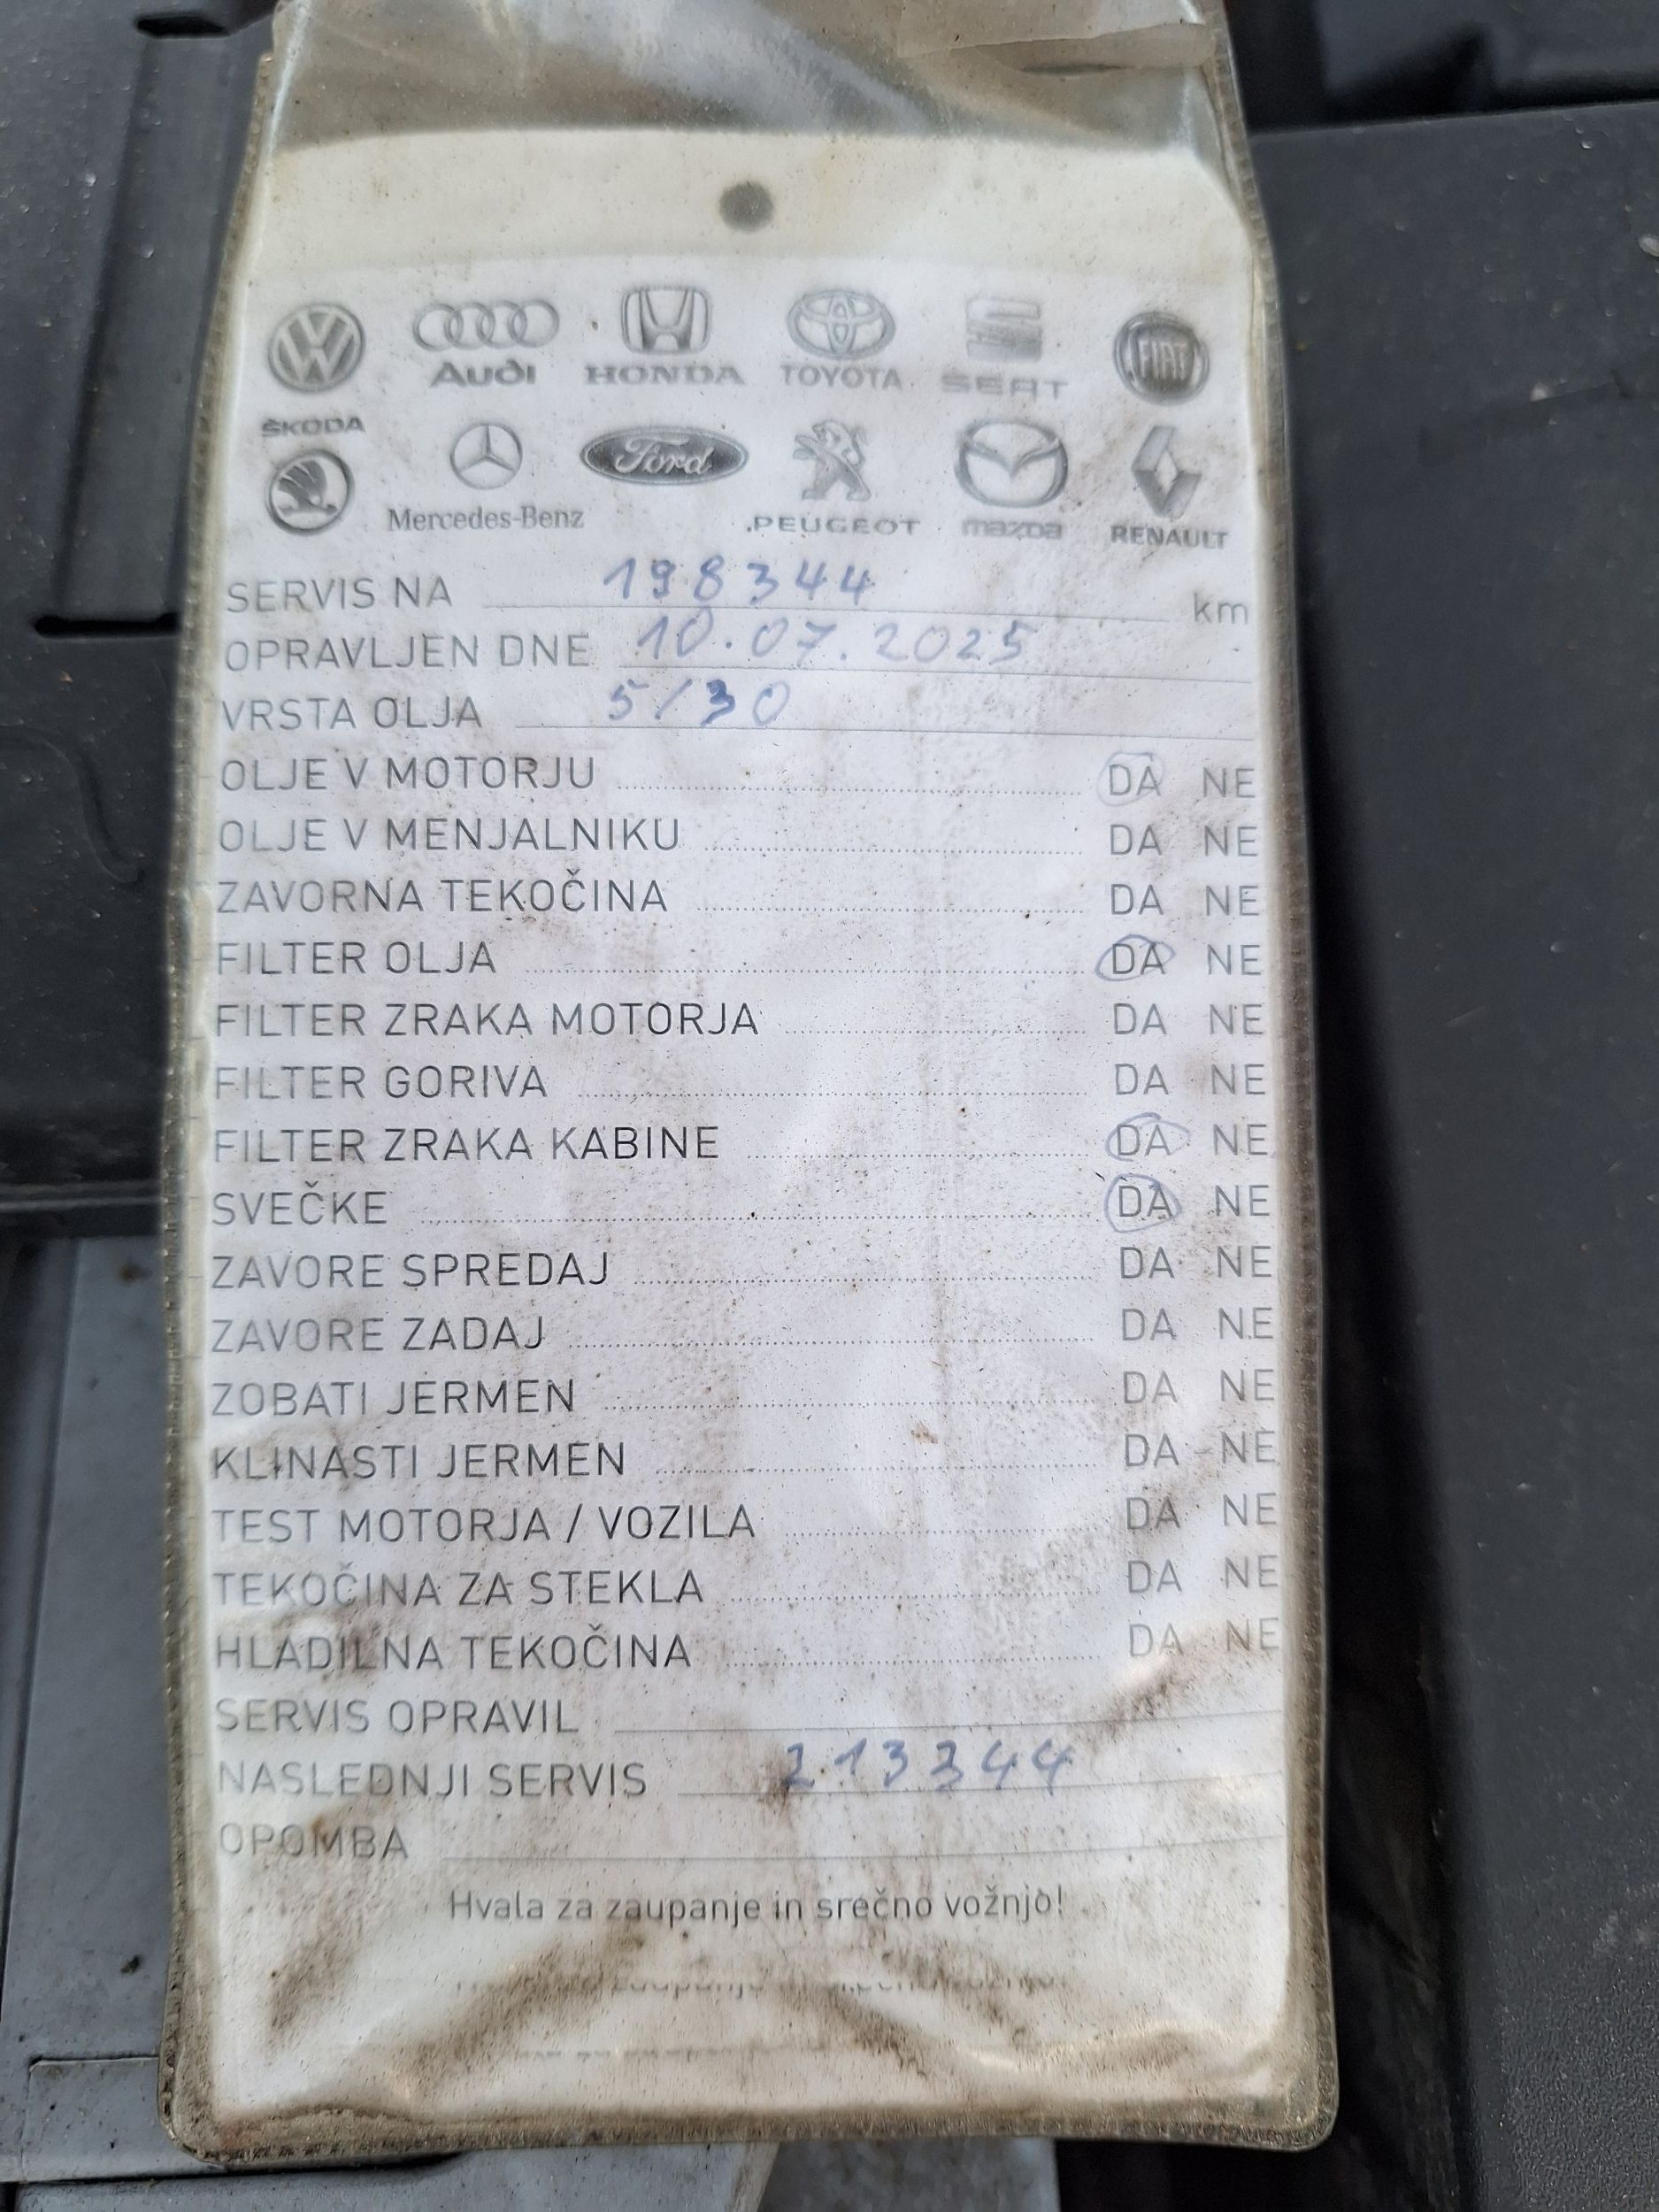 Audi HONDA TOYOTA SEAT FIAT
ŠKODA
Mercedes-Benz Ford PEUGEOT mazda RENAULT
SERVIS NA 198344 km
OPRAVLJEN DNE 10.07.2025
VRSTA OLJA 5/30
OLJE V MOTORJU DA NE
OLJE V MENJALNIKU DA NE
ZAVORNA TEKOČINA DA NE
FILTER OLJA DA NE
FILTER ZRAKA MOTORJA DA NE
FILTER GORIVA DA NE
FILTER ZRAKA KABINE DA NE
SVEČKE DA NE
ZAVORE SPREDAJ DA NE
ZAVORE ZADAJ DA NE
ZOBATI JERMEN DA NE
KLINASTI JERMEN DA NE
TEST MOTORJA / VOZILA DA NE
TEKOČINA ZA STEKLA DA NE
HLADILNA TEKOČINA DA NE
SERVIS OPRAVIL
NASLEDNJI SERVIS 213344
OPOMBA
Hvala za zaupanje in srečno vožnjo!